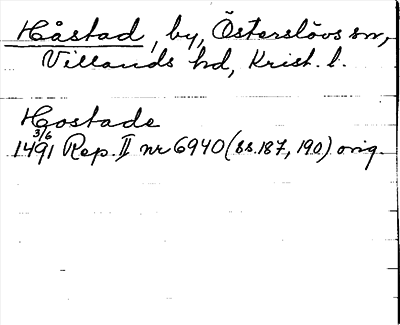 Håstad, by, Österslövs sn,
Villands hd, Krist. l.
Hostade
3/6
1491 Rep. II nr 6940 (ss. 187, 190) orig.